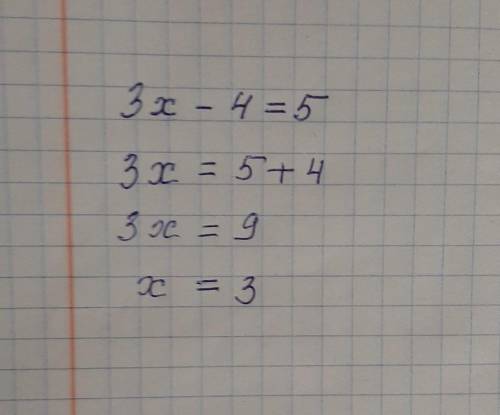 3x - 4 = 5
3x = 5 + 4
3x = 9
x = 3